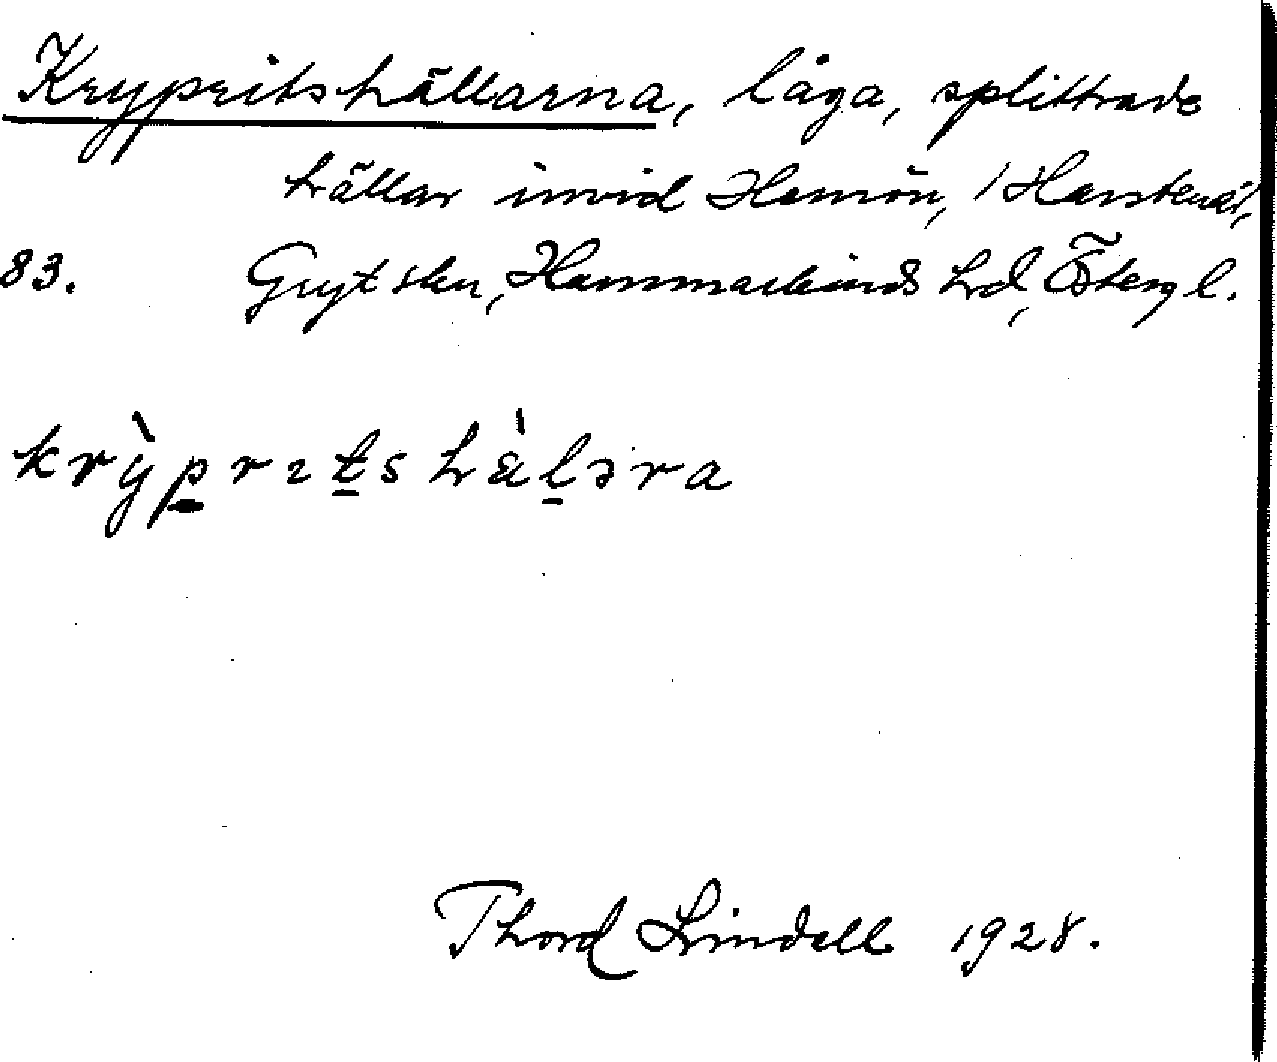 Krypritshällarna, låga, splittrade
hällar invid Hamön, /Harstena/,
83. Gryt skn, Hammarkinds hd, Östergl.
krỳprɩts hàlɔra
Thord Lindell 1928.